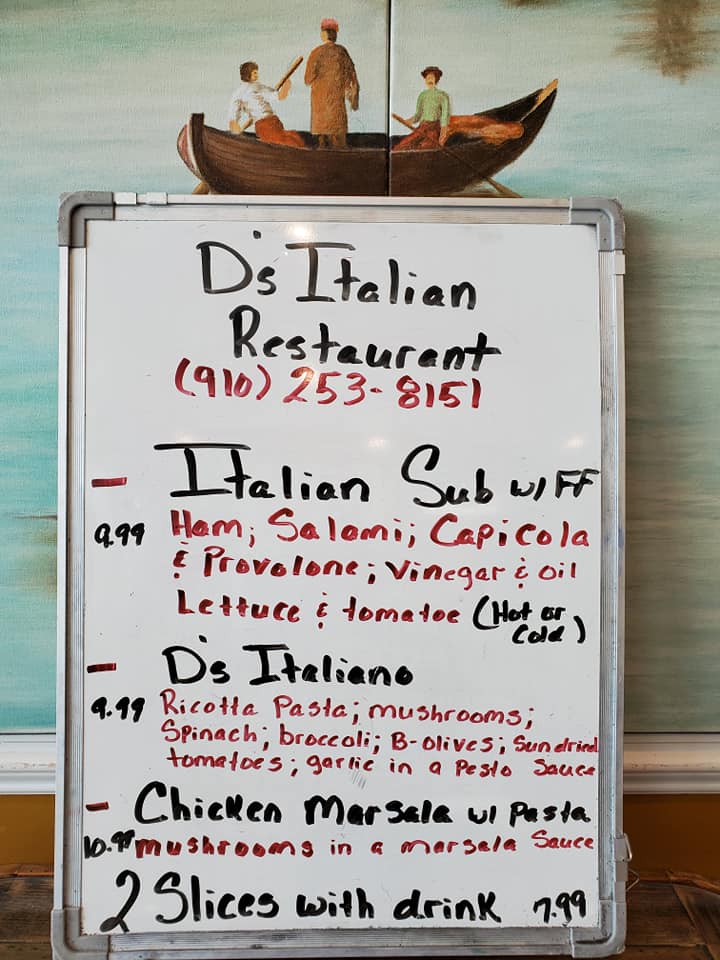 D's Italian
Restaurant
(910) 253-8151
- Italian Sub w/ FF
9.99 Ham; Salami; Capicola
& Provolone; Vinegar & oil
Lettuce & tomatoe (Hot or
Cold)
- D's Italiano
9.99 Ricotta Pasta; mushrooms;
Spinach; broccoli; B-olives; Sundried
tomatoes; garlic in a Pesto Sauce
- Chicken Marsala w/ Pasta
10.99 mushrooms in a marsala Sauce
2 Slices with drink 7.99